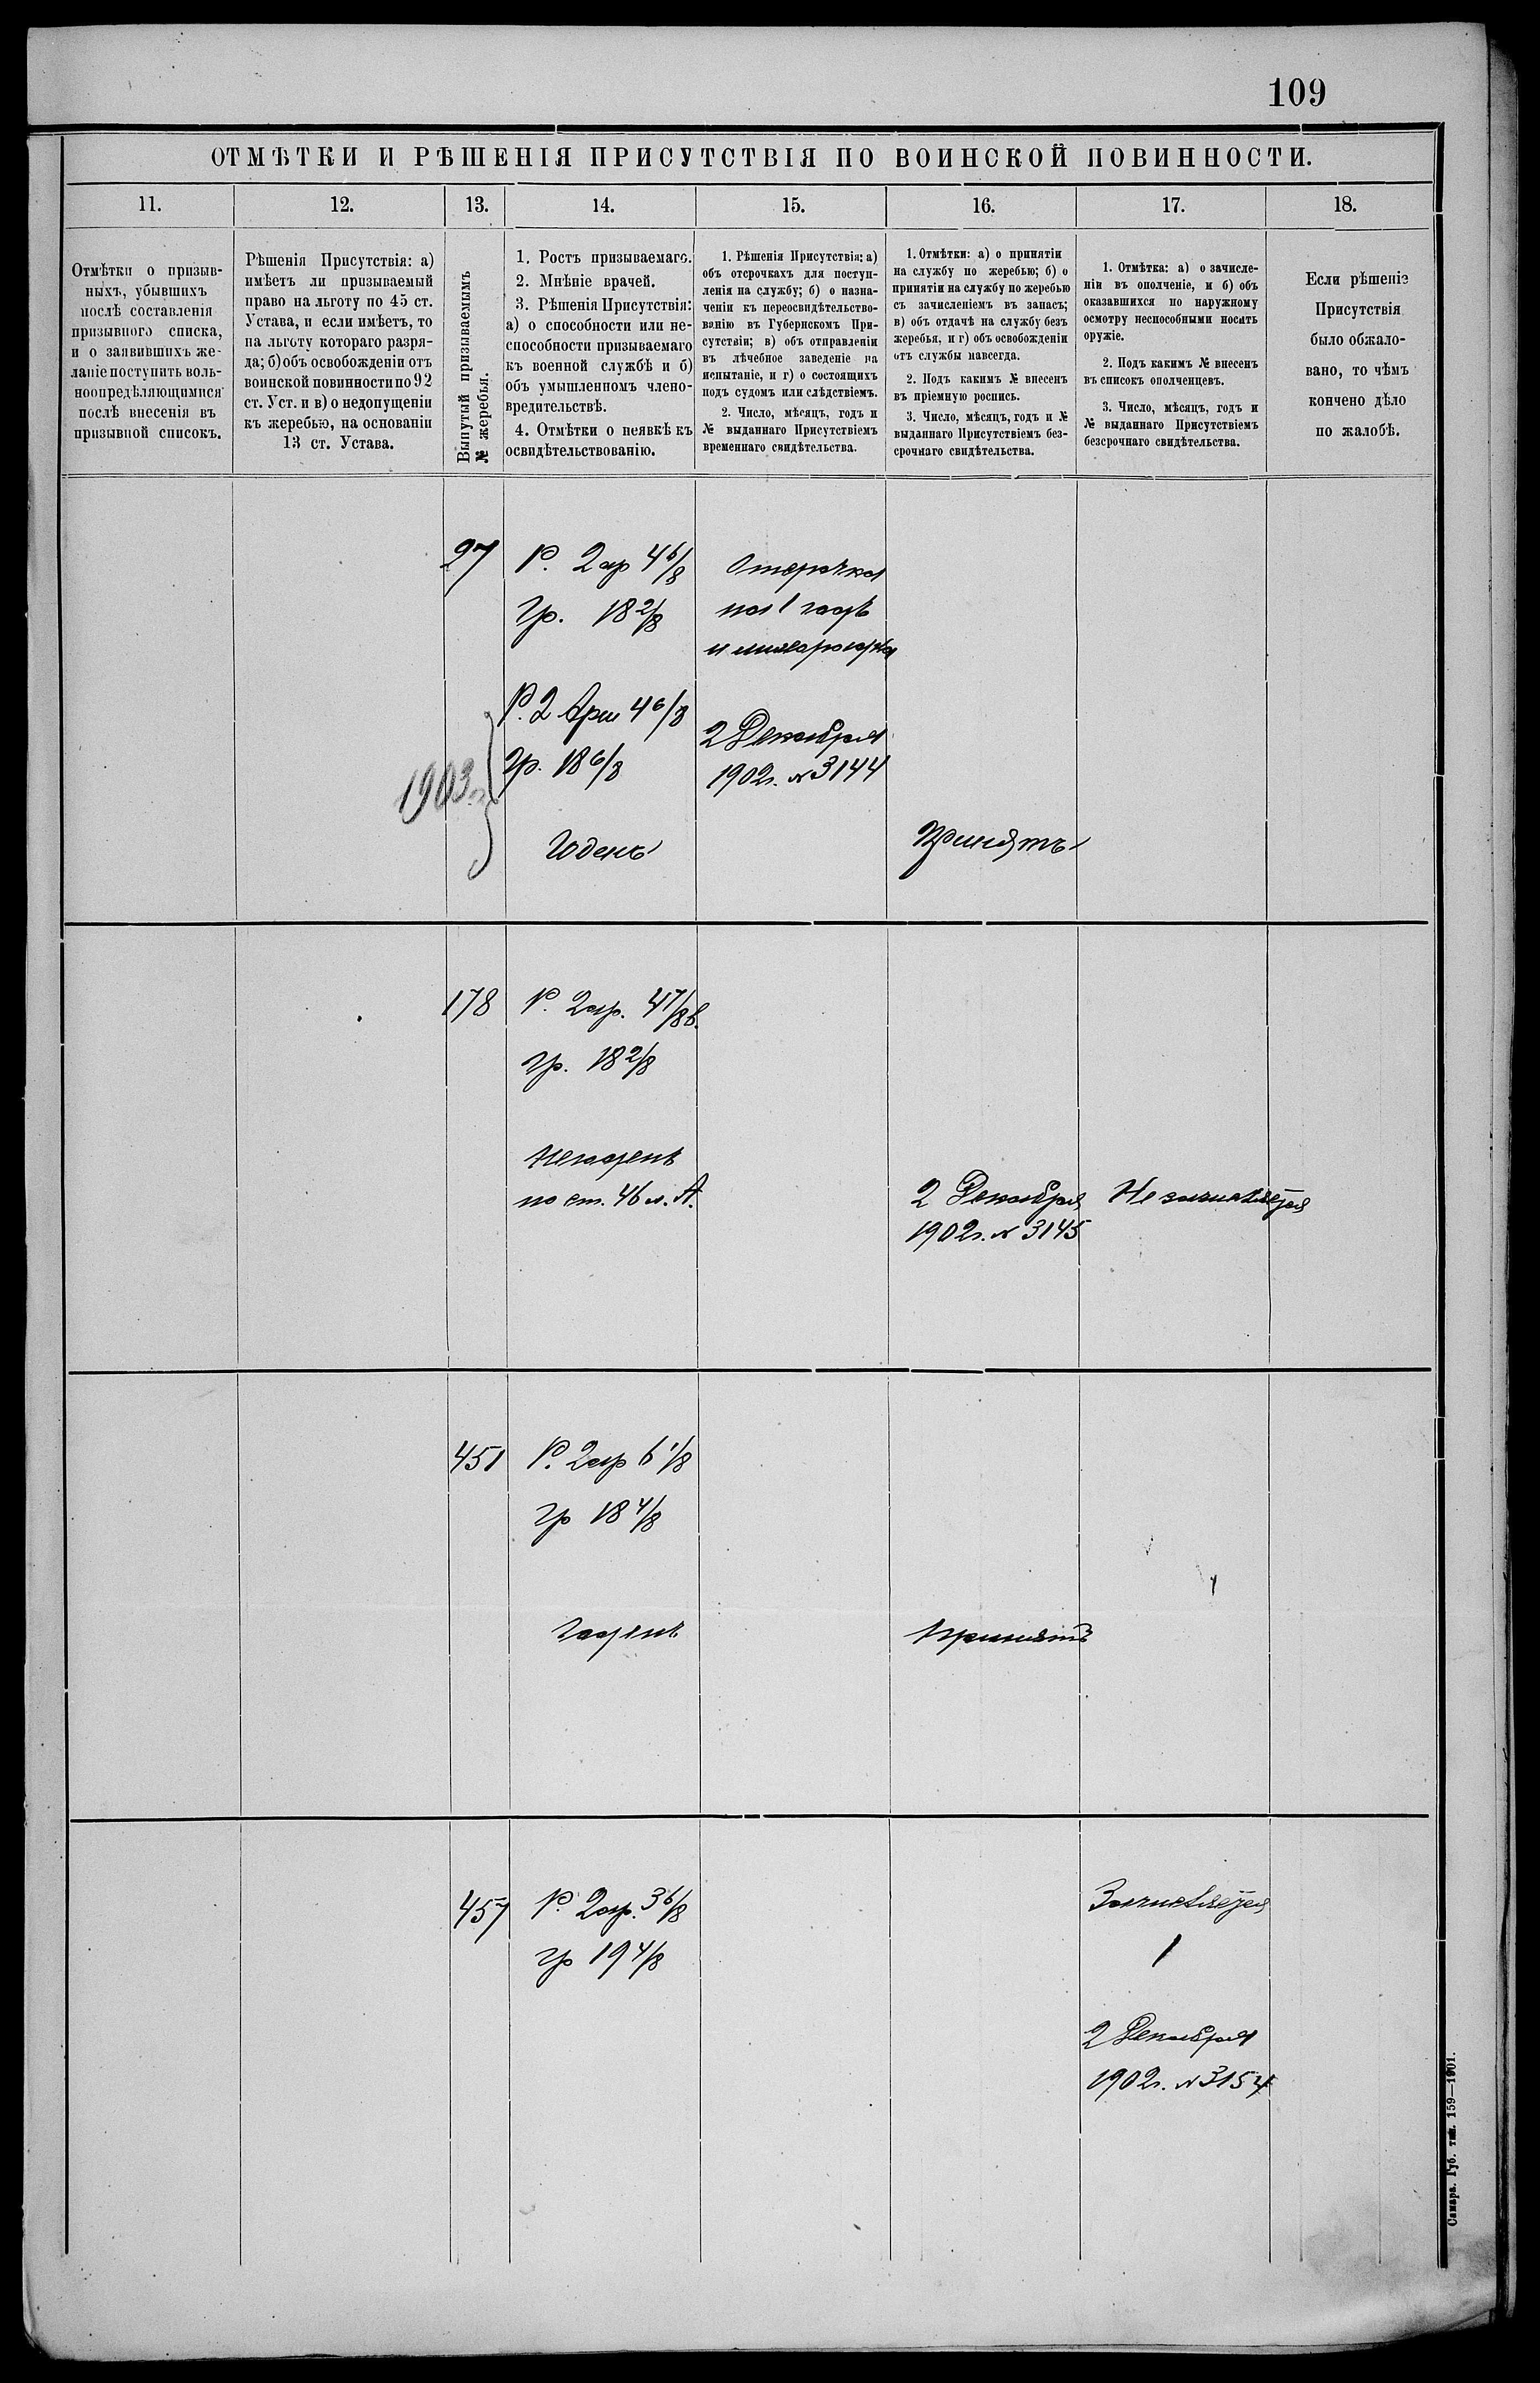 109
ОТМѢТКИ И РѢШЕНІЯ ПРИСУТСТВІЯ ПО ВОИНСКОЙ ПОВИННОСТИ.
11.
12.
13.
14.
15.
16.
17.
18.
Отмѣтки о призыв-
ныхъ, убывшихъ
послѣ составленія
призывного списка,
и о заявившихъ же-
ланіе поступить воль-
ноопредѣляющимися
послѣ внесенія въ
призывной списокъ.
Рѣшенія Присутствія: а)
имѣетъ ли призываемый
право на льготу по 45 ст.
Устава, и если имѣетъ, то
на льготу котораго разря-
да; б) объ освобожденіи отъ
воинской повинности по 92
ст. Уст. и в) о недопущеніи
къ жеребью, на основаніи
13 ст. Устава.
Вынутый призываемымъ
№ жеребья.
1. Ростъ призываемаго.
2. Мнѣніе врачей.
3. Рѣшенія Присутствія:
а) о способности или не-
способности призываемаго
къ военной службѣ и б)
объ умышленномъ члено-
вредительствѣ.
4. Отмѣтки о неявкѣ къ
освидѣтельствованію.
1. Рѣшенія Присутствія: а)
объ отсрочкахъ для поступ-
ленія на службу; б) о назна-
ченіи къ переосвидѣтельство-
ванію въ Губернскомъ При-
сутствіи; в) объ отправленіи
въ лѣчебное заведеніе на
испытаніе, и г) о состоящихъ
подъ судомъ или слѣдствіемъ.
2. Число, мѣсяцъ, годъ и
№ выданнаго Присутствіемъ
временнаго свидѣтельства.
1. Отмѣтки: а) о принятіи
на службу по жеребью; б) о
принятіи на службу по жеребью
съ зачисленіемъ въ запасъ;
в) объ отдачѣ на службу безъ
жеребья, и г) объ освобожденіи
отъ службы навсегда.
2. Подъ какимъ № внесенъ
въ пріемную роспись.
3. Число, мѣсяцъ, годъ и №
выданнаго Присутствіемъ без-
срочнаго свидѣтельства.
1. Отмѣтка: а) о зачисле-
ніи въ ополченіе, и б) объ
оказавшихся по наружному
осмотру неспособными носить
оружіе.
2. Подъ какимъ № внесенъ
въ списокъ ополченцевъ.
3. Число, мѣсяцъ, годъ и
№ выданнаго Присутствіемъ
безсрочнаго свидѣтельства.
Если рѣшеніе
Присутствія
было обжало-
вано, то чѣмъ
кончено дѣло
по жалобѣ.
27
Р. 2 ар 4 6/8
гр. 18 2/8
Отсрочка
на 1 годъ
Р. 2 Арш 4 6/8
гр. 18 6/8
1903 г.
2 Декабря
1902г. № 3144
Годенъ
Принятъ
178
Р. 2 ар. 4 7/8 в.
гр. 18 2/8
Негоденъ
по ст. 46 л. А.
2 Декабря
1902г. № 3145
Не зачисляется
451
Р. 2 ар 6 1/8
гр 18 4/8
Годенъ
Принятъ
457
Р. 2 ар. 3 6/8
гр 19 4/8
Зачисляется
1
2 Декабря
1902г. № 3154
Самара. Губ. тип. 159—1901.